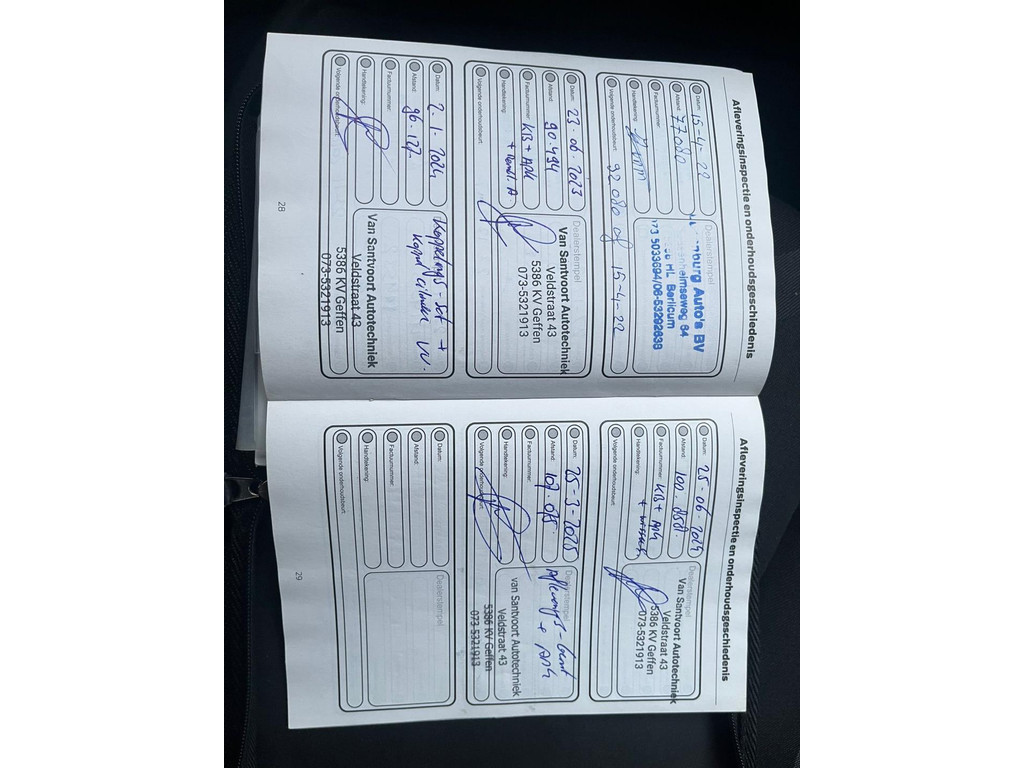 Afleveringsinspectie en onderhoudsgeschiedenis
Datum: 15-4-22
Afstand: 77080
Factuurnummer:
Handtekening:
Volgende onderhoudsbeurt: 92080 of 15-4-22
Dealerstempel
burg Auto's BV
heimseweg 64
ML Berlicum
073 5033694/06-53292838
Datum: 23.06.2023
Afstand: 90.494
Factuurnummer: KB + APK
Handtekening:
Volgende onderhoudsbeurt:
Dealerstempel
Van Santvoort Autotechniek
Veldstraat 43
5386 KV Geffen
073-5321913
Datum: 2.1.2024
Afstand: 96.127.
Factuurnummer:
Handtekening:
Volgende onderhoudsbeurt:
Koppelings-set +
Van Santvoort Autotechniek
Veldstraat 43
5386 KV Geffen
073-5321913
28
Afleveringsinspectie en onderhoudsgeschiedenis
Datum: 25-06-2024
Afstand:
Factuurnummer: KB + APK
Handtekening:
Volgende onderhoudsbeurt:
Dealerstempel
Van Santvoort Autotechniek
Veldstraat 43
5386 KV Geffen
073-5321913
Datum: 25-3-2025
Afstand: 107.075.
Factuurnummer:
Handtekening:
Volgende onderhoudsbeurt:
Dealerstempel
Afleverings-beurt
+ APK
van Santvoort Autotechniek
Veldstraat 43
5386 KV Geffen
073-5321913
Datum:
Afstand:
Factuurnummer:
Handtekening:
Volgende onderhoudsbeurt:
Dealerstempel
29